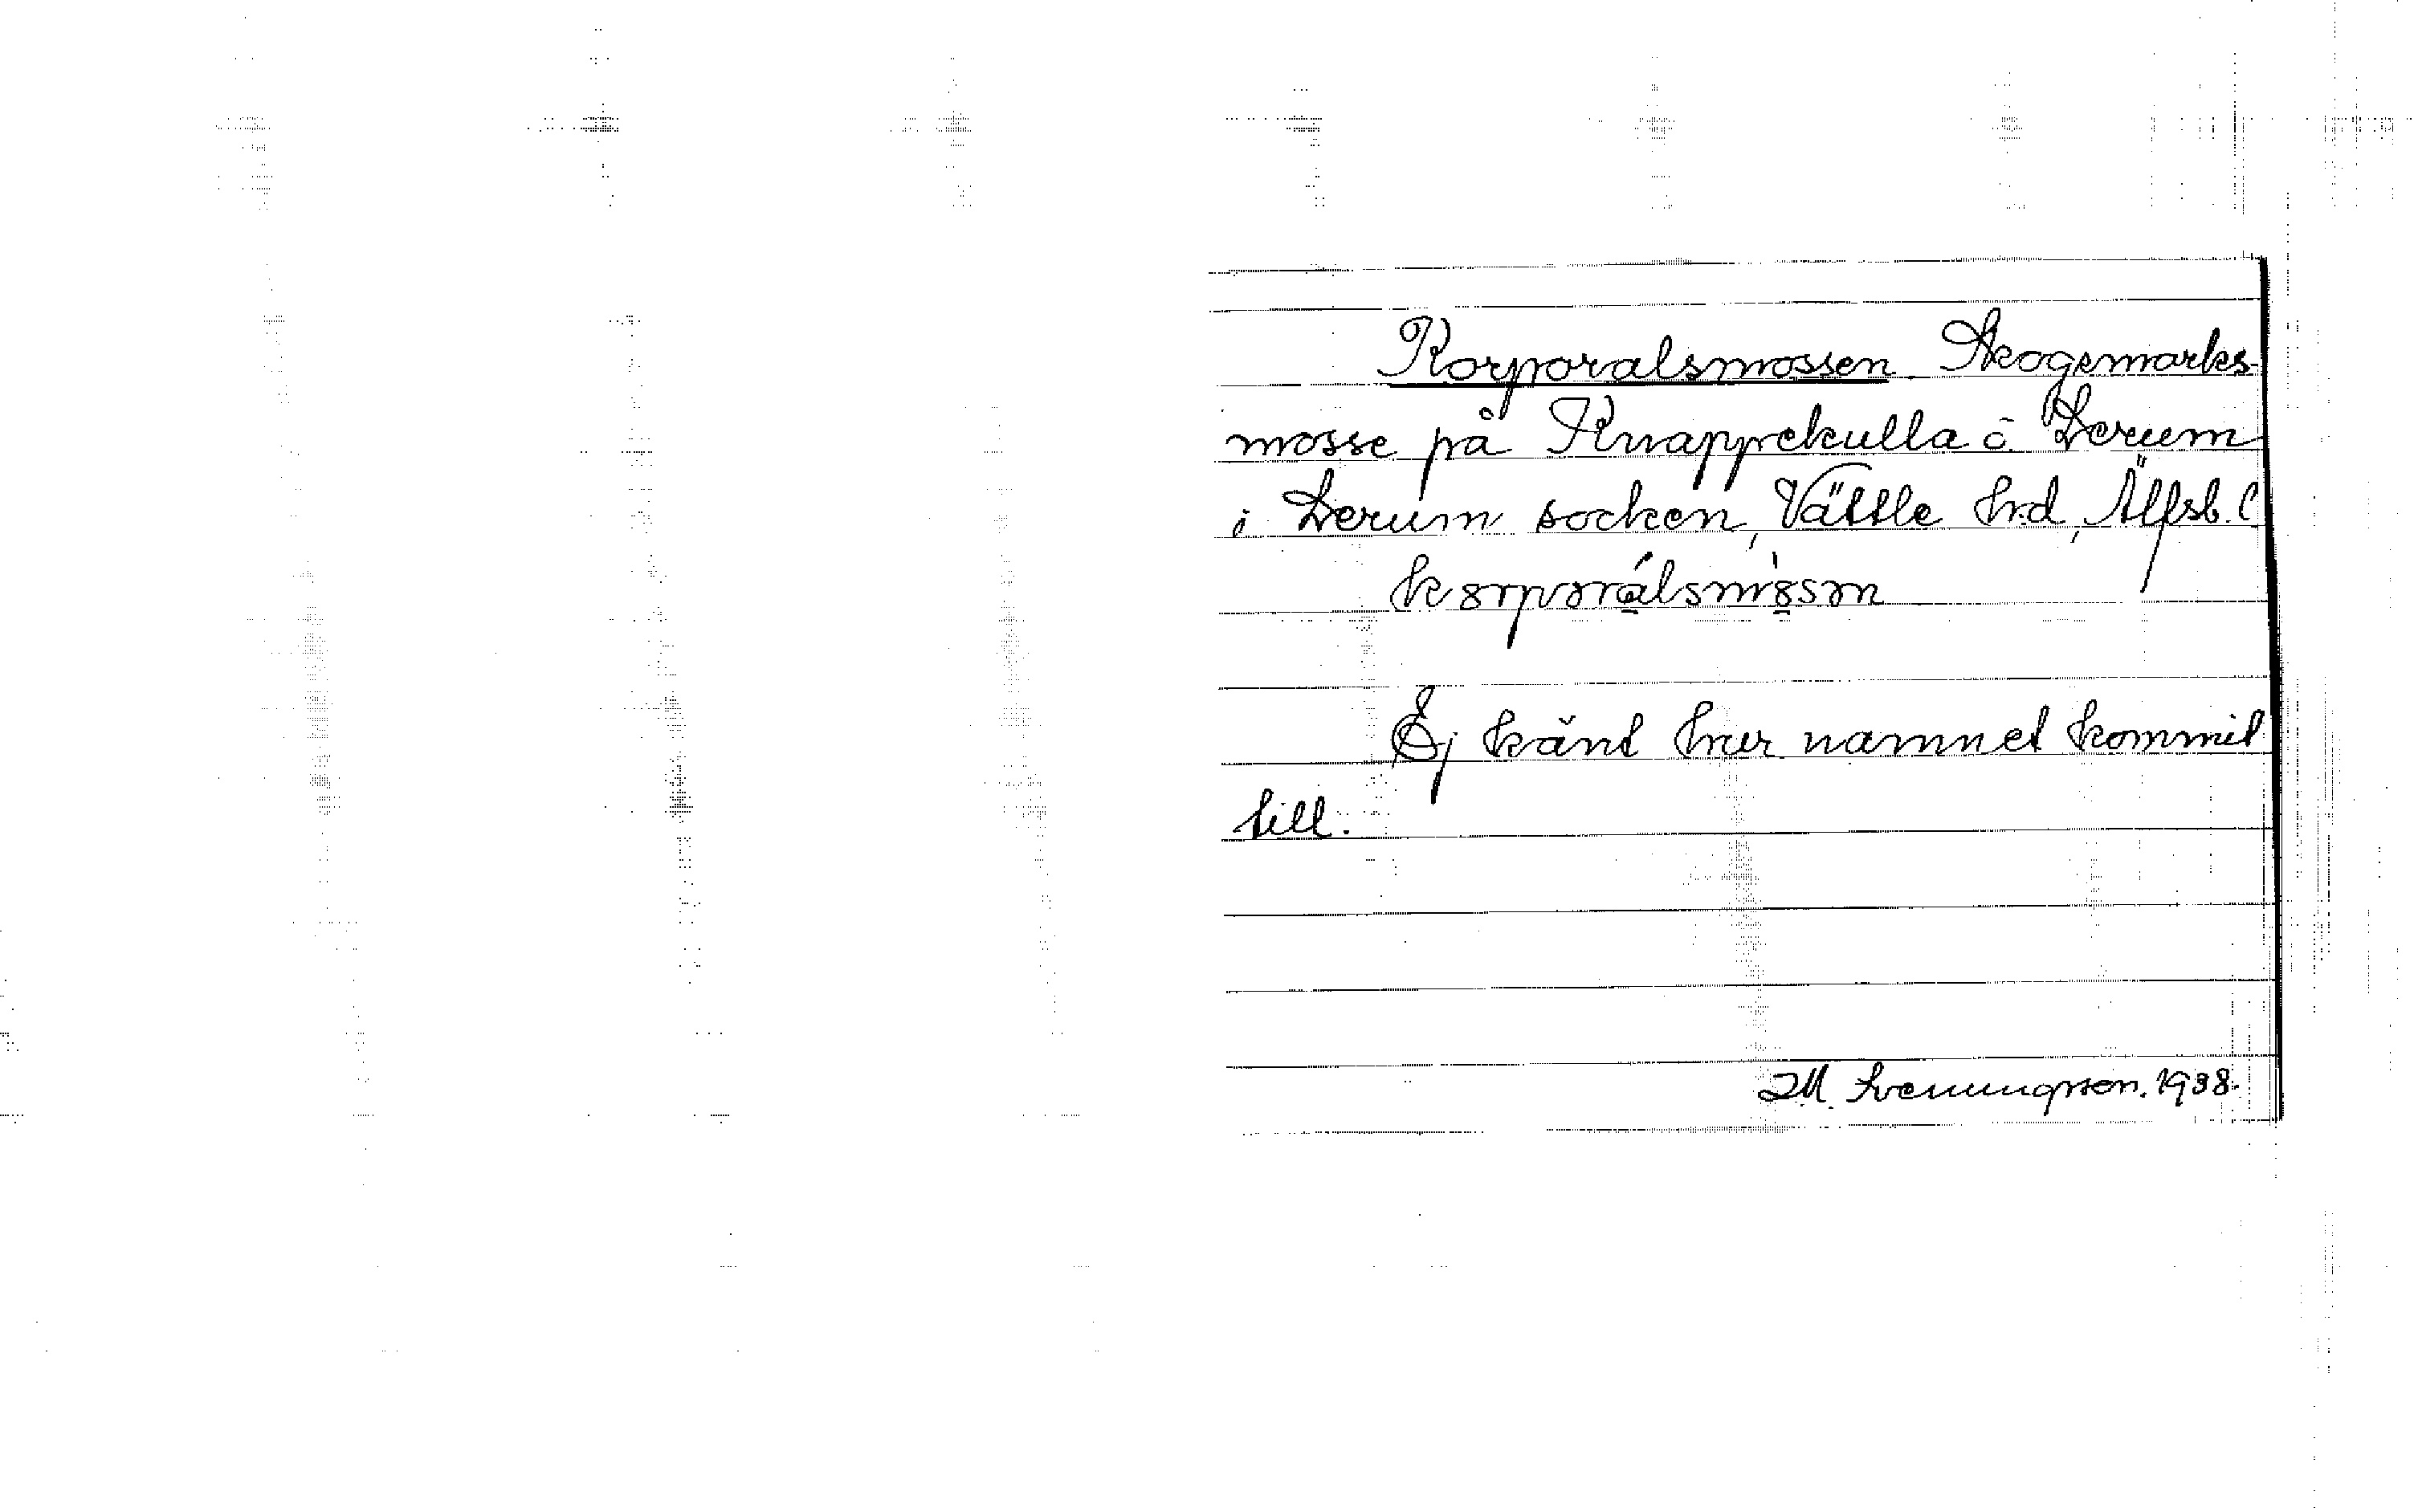 Korporalsmossen Skogsmarks-
mosse på Knappekulla ö. Lerum
i Lerum socken, Vättle hrd, Älfsb. l
korporálsmossən
Ej känt hur namnet kommit
till.
M. Svenungsson. 1938.